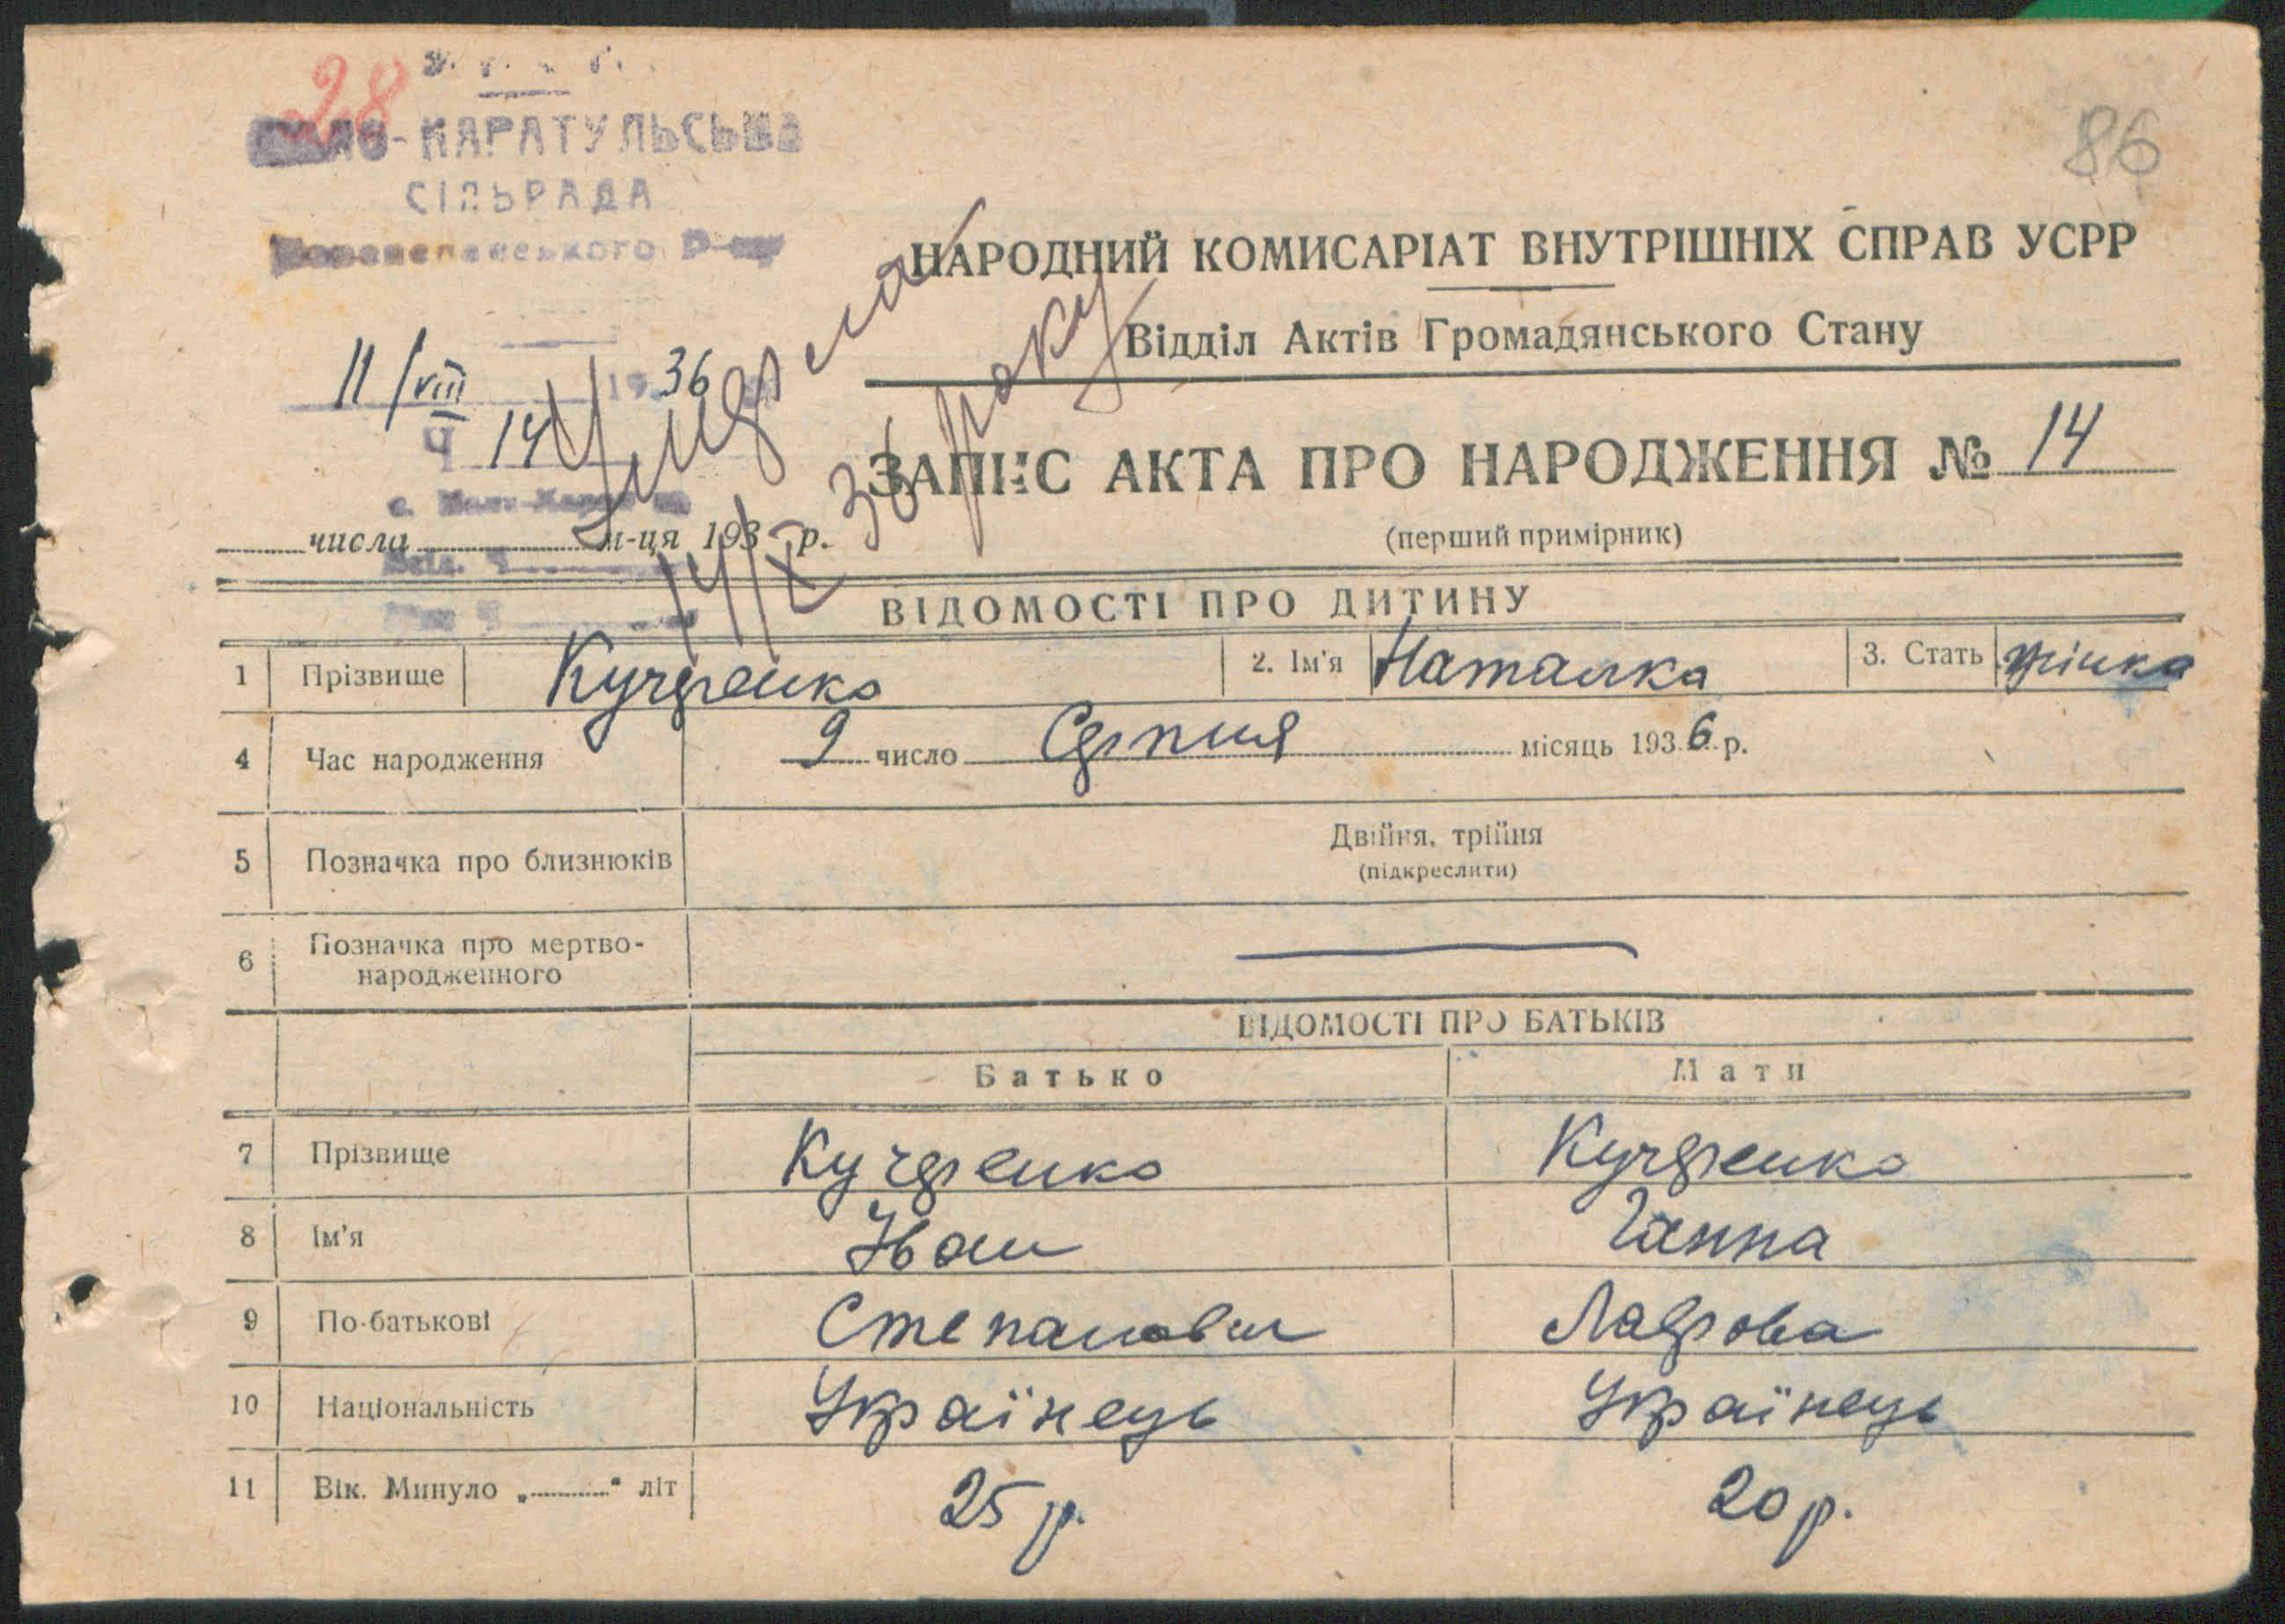 28
86
КАРАТУЛЬСЬКА
СІЛЬРАДА
Р-ну
НАРОДНИЙ КОМИСАРІАТ ВНУТРІШНІХ СПРАВ УСРР
Відділ Актів Громадянського Стану
11/VIII 1936
Ч 14
Умерла
14/X 36 року
ЗАПИС АКТА ПРО НАРОДЖЕННЯ № 14
(перший примірник)
числа м-ця 193 р.
ВІДОМОСТІ ПРО ДИТИНУ
1 Прізвище Кучеренко 2. Ім'я Наталка 3. Стать жінка
4 Час народження 9 число Серпня місяць 1936 р.
5 Позначка про близнюків Двійня, трійня
(підкреслити)
6 Позначка про мертво-
народженного
ВІДОМОСТІ ПРО БАТЬКІВ
Батько Мати
7 Прізвище Кучеренко Кучеренко
8 Ім'я Іван Ганна
9 По-батькові Степанович Лаврова
10 Національність Українець Українець
11 Вік. Минуло „ “ літ 25 р. 20 р.